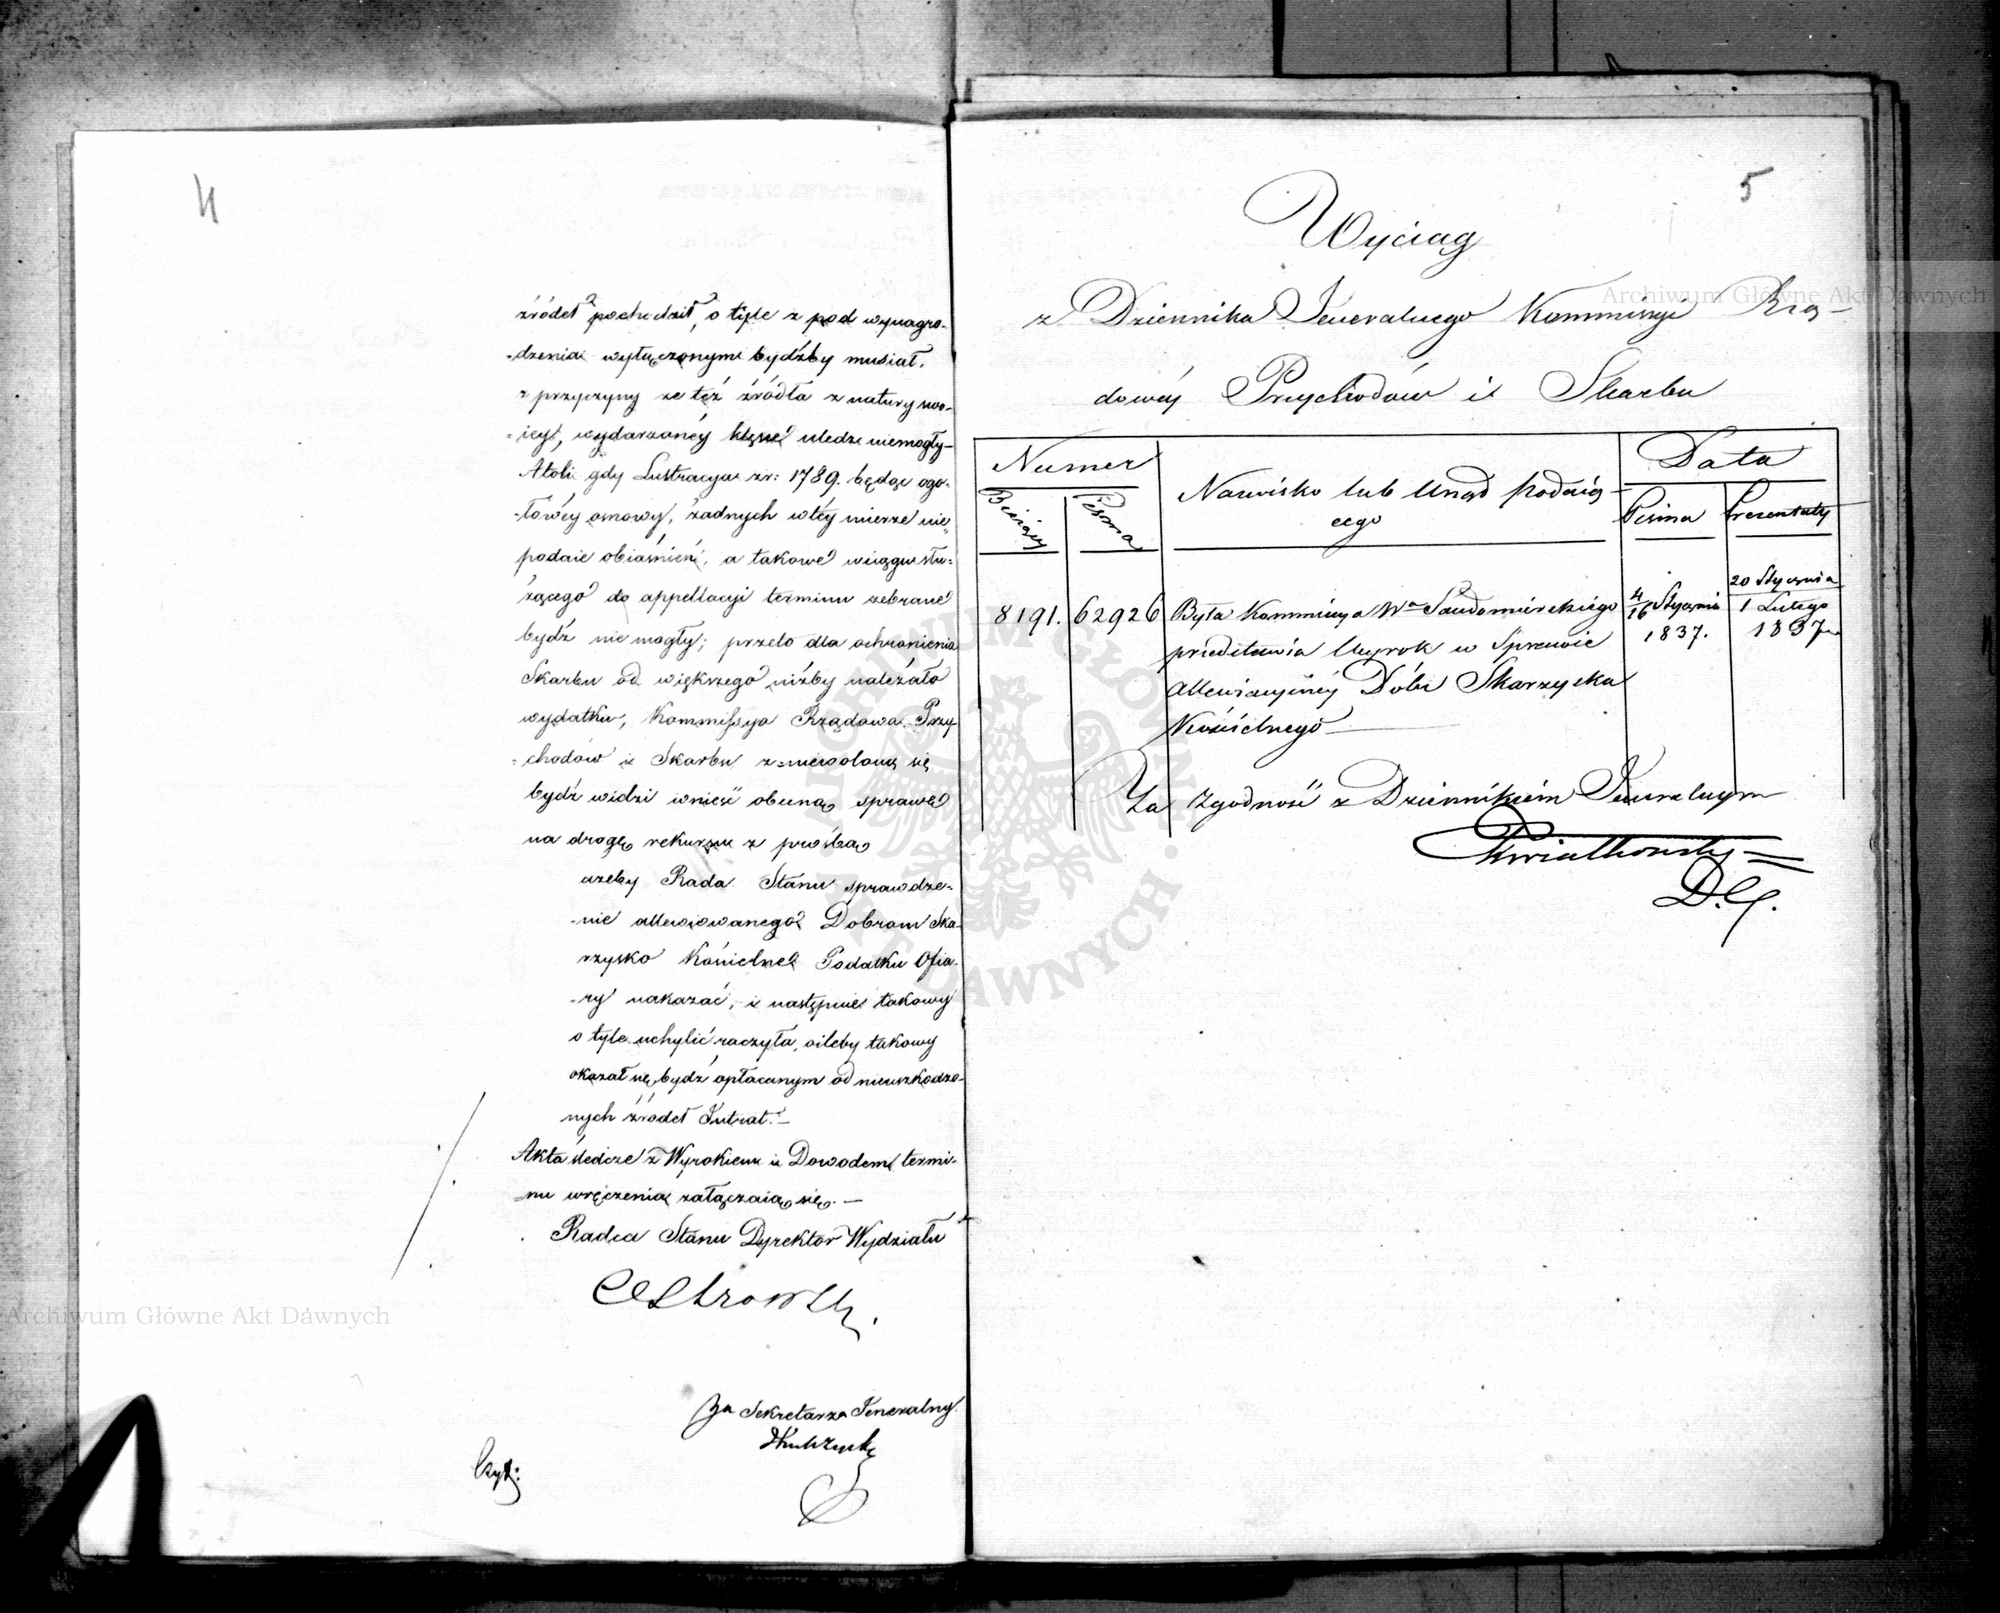 4
źródeł pochodził, o tyle z pod wynagro-
-dzenia wyłączonym bydźby musiał,
z przyczyny że téż źródła z natury swo-
-iey, wydarzoney klęsce uledz niemogły-
A tobi gdy Lustracya z r: 1789. będąc ogo-
-łowey osnowy, żadnych w téy mierze nie
podaie obiaśnień, a takowe w ciągu słu-
żącego do appellacyi terminu zebrane
bydź nie mogły; przeto dla ochronienia
Skarbu od większego niżby należało
wydatku, Kommissya Rządowa Przy-
-chodów i Skarbu zniewoloną się
bydź widzi wnieść obecną sprawę
na drogę rekursu z prośbą
ażeby Rada Stanu sprawdze-
-nie allewiowanego Dobrom Ska-
rzysko Kościelne Podatku Ofia-
-ry nakazać, i następnie takowy
o tyle uchylić raczyła, oileby takowy
okazał się bydź opłacanym od nieuszkodzo-
nych źródeł Intrat.—
Akta śledcze z Wyrokiem i Dowodem termi-
nu wręczenia załączaią się.—
Radca Stanu Dyrektor Wydziału
Za Sekretarza Jeneralny
Czyt:
5
Wyciąg
z Dziennika Jeneralnego Kommissyi Rzą-
dowéy Przychodów i Skarbu
Numer
Data
Bieżący
Pisma
Nazwisko lub Urząd podaią-
cego
Pisma
Prezentaty
8191.
62926
Była Kommissya Wa Sandomirskiego
przedstawia Wyrok w Sprawie
Allewiacyinéy Dóbr Skarzyska
Kościelnego
4/16 Stycznia
1837.
20 Stycznia
1 Lutego
1837
Za Zgodność z Dziennikiem Jeneralnym
Kwiatkowski
D. G.
Archiwum Główne Akt Dawnych
Archiwum Główne Akt Dawnych